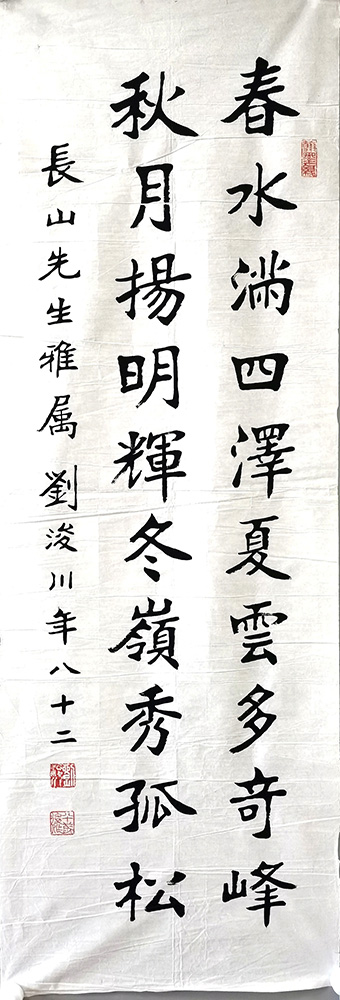 春水滿四澤夏雲多奇峰
秋月揚明輝冬嶺秀孤松
長山先生雅属 劉浚川年八十二